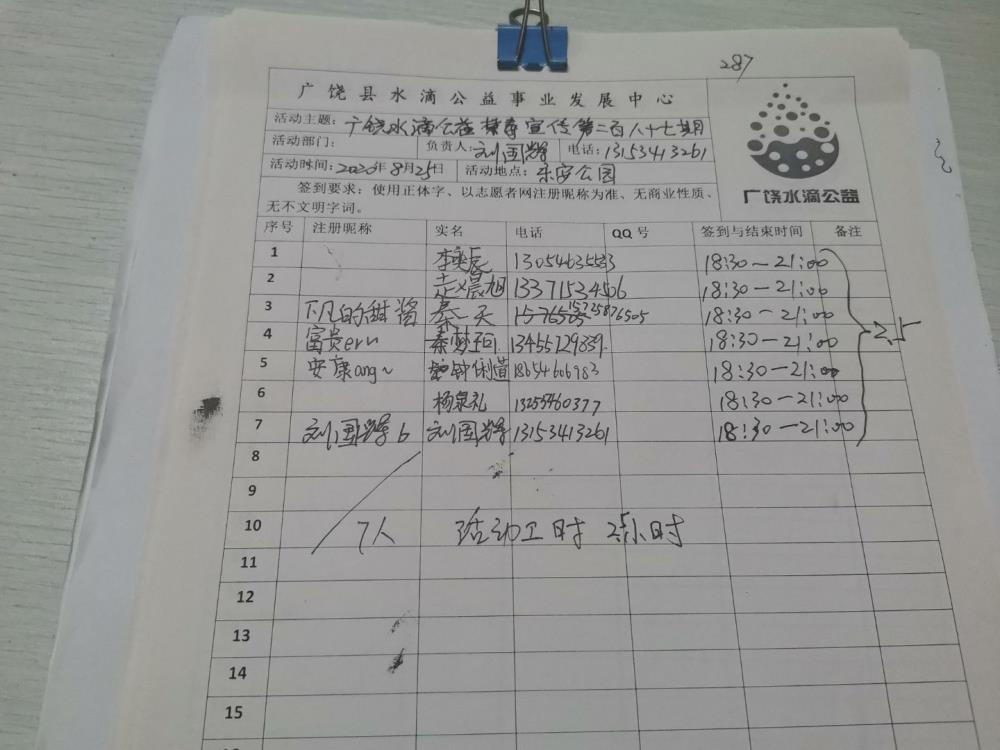 287
广饶县水滴公益事业发展中心
活动主题: 广饶水滴公益禁毒宣传第二百八十七期
活动部门: 负责人: 刘国辉 电话: 13153413261
活动时间: 2020年8月25日 活动地点: 乐安公园
签到要求:使用正体字、以志愿者网注册昵称为准、无商业性质、
无不文明字词。
广饶水滴公益
序号 注册昵称 实名 电话 QQ号 签到与结束时间 备注
1 李奕辰 18:30—21:00
2 孟晨旭 13371534506 18:30—21:00
3 下凡的甜酱 秦一天 15725876505 18:30—21:00
4 富贵eru 秦梦珂 13455129839 18:30—21:00 2.5
5 安康ang~ 钟俐道 18654606983 18:30—21:00
6 杨泉礼 13255460377 18:30—21:00
7 刘国辉b 刘国辉 13153413261 18:30—21:00
8
9
10 7人 活动工时 2.5小时
11
12
13
14
15